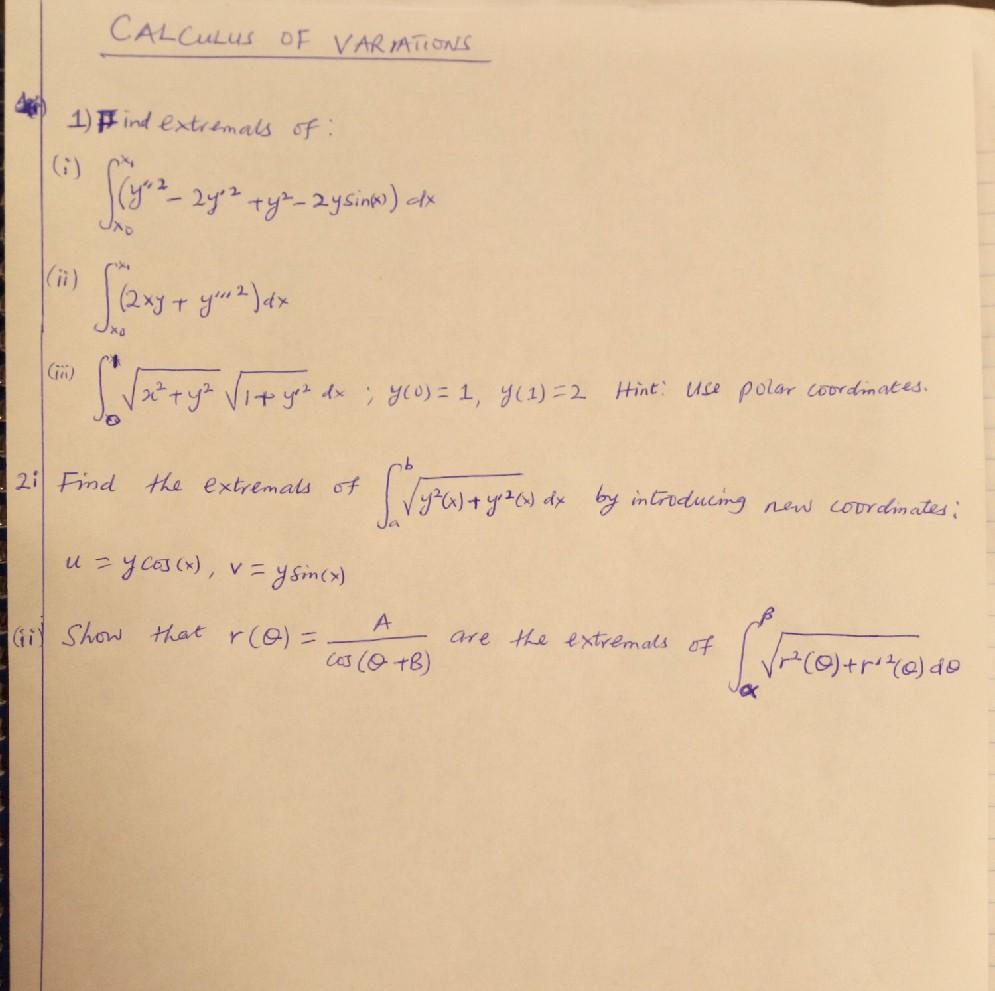 CALCULUS OF VARIATIONS
1) Find extremals of :
(i) ∫_{x0}^{x1} (y''² - 2y'² + y² - 2y sin(x)) dx
(ii) ∫_{x0}^{x1} (2xy + y'''²) dx
(iii) ∫_0^1 √(x² + y²) √(1 + y'²) dx ; y(0) = 1, y(1) = 2 Hint: Use polar coordinates.
2i Find the extremals of ∫_a^b √(y²(x) + y'²(x)) dx by introducing new coordinates:
u = y cos(x), v = y sin(x)
(ii) Show that r(θ) = A / cos(θ + B) are the extremals of ∫_α^β √(r²(θ) + r'²(θ)) dθ